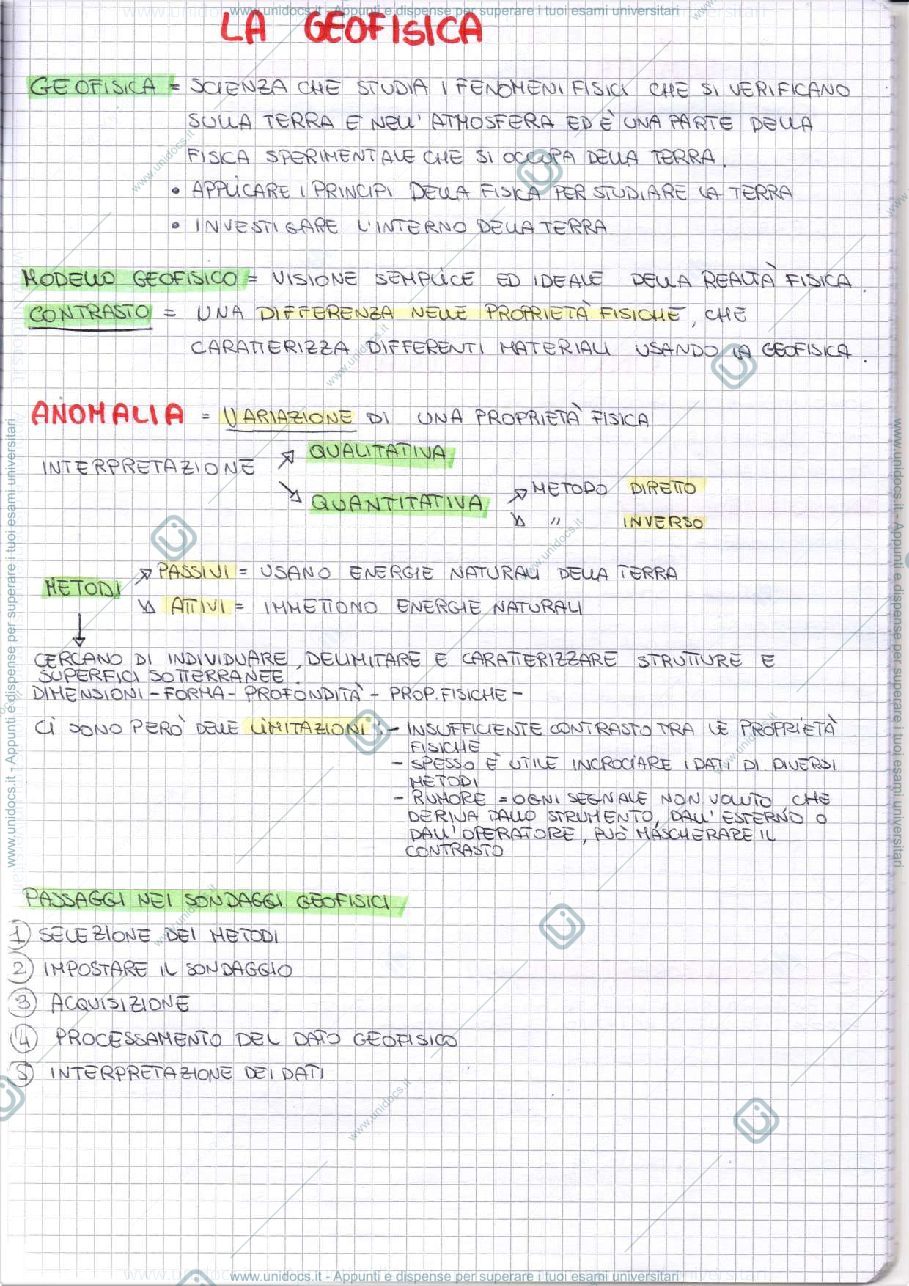 www.unidocs.it - Appunti e dispense per superare i tuoi esami universitari
LA GEOFISICA
GEOFISICA = SCIENZA CHE STUDIA I FENOMENI FISICI CHE SI VERIFICANO
SULLA TERRA E NELL'ATMOSFERA ED È UNA PARTE DELLA
FISICA SPERIMENTALE CHE SI OCCUPA DELLA TERRA.
• APPLICARE I PRINCIPI DELLA FISICA PER STUDIARE LA TERRA
• INVESTIGARE L'INTERNO DELLA TERRA
MODELLO GEOFISICO = VISIONE SEMPLICE ED IDEALE DELLA REALTÀ FISICA.
CONTRASTO = UNA DIFFERENZA NELLE PROPRIETÀ FISICHE, CHE
CARATTERIZZA DIFFERENTI MATERIALI USANDO LA GEOFISICA.
ANOMALIA = VARIAZIONE DI UNA PROPRIETÀ FISICA
INTERPRETAZIONE ↗ QUALITATIVA
↘ QUANTITATIVA ↗ METODO DIRETTO
↘ " INVERSO
METODI ↗ PASSIVI = USANO ENERGIE NATURALI DELLA TERRA
↘ ATTIVI = IMMETTONO ENERGIE NATURALI
↓
CERCANO DI INDIVIDUARE, DELIMITARE E CARATTERIZZARE STRUTTURE E
SUPERFICI SOTTERRANEE.
DIMENSIONI - FORMA - PROFONDITÀ - PROP. FISICHE -
CI SONO PERÒ DELLE LIMITAZIONI: - INSUFFICIENTE CONTRASTO TRA LE PROPRIETÀ
FISICHE
- SPESSO È UTILE INCROCIARE I DATI DI DIVERSI
METODI
- RUMORE = OGNI SEGNALE NON VOLUTO CHE
DERIVA DALLO STRUMENTO, DALL'ESTERNO O
DALL'OPERATORE, PUÒ MASCHERARE IL
CONTRASTO
PASSAGGI NEI SONDAGGI GEOFISICI
1) SELEZIONE DEI METODI
2) IMPOSTARE IL SONDAGGIO
3) ACQUISIZIONE
4) PROCESSAMENTO DEL DATO GEOFISICO
5) INTERPRETAZIONE DEI DATI
www.unidocs.it - Appunti e dispense per superare i tuoi esami universitari
www.unidocs.it - Appunti e dispense per superare i tuoi esami universitari
www.unidocs.it - Appunti e dispense per superare i tuoi esami universitari